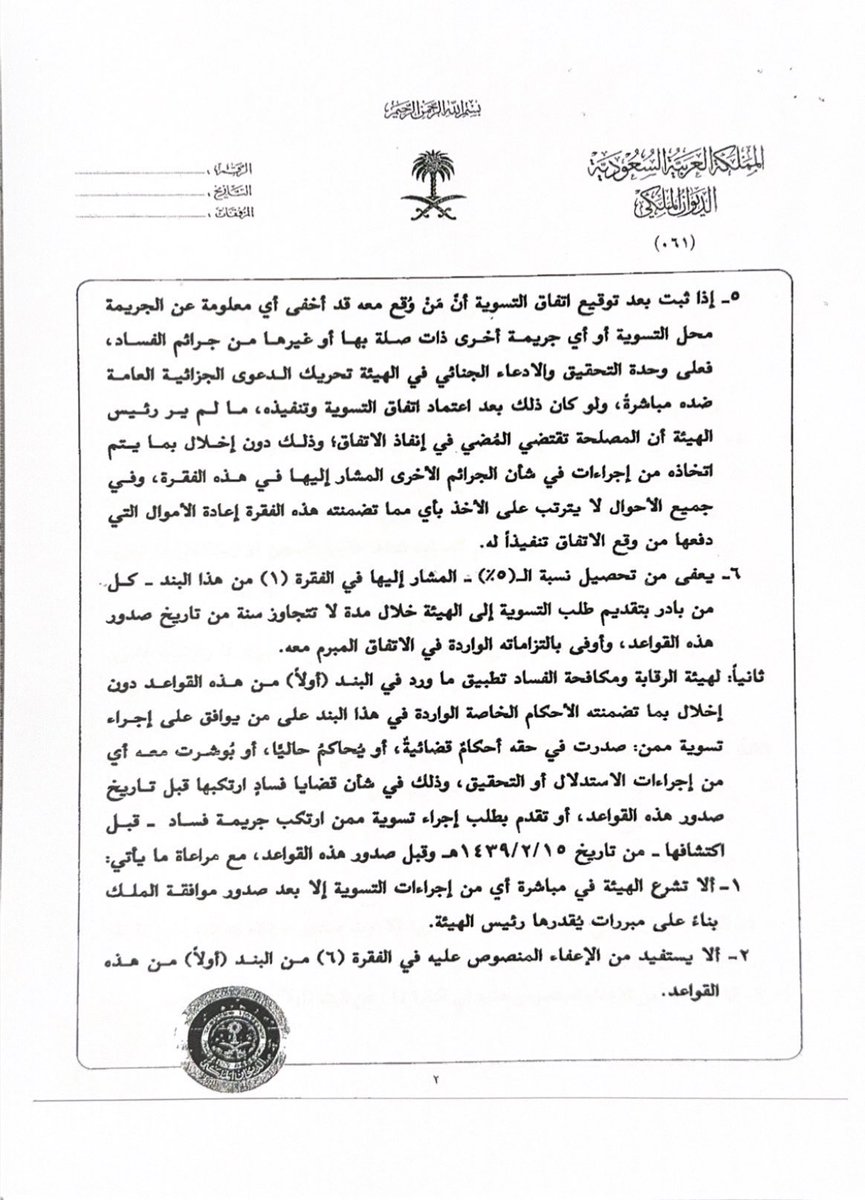 بسم الله الرحمن الرحيم
المملكة العربية السعودية
الديوان الملكي
(٠٦١)
الرقم :
التاريخ :
المرفقات :
٥ـ إذا ثبت بعد توقيع اتفاق التسوية أنَّ مَنْ وُقع معه قد أخفى أي معلومة عن الجريمة
محل التسوية أو أي جريمة أخرى ذات صلة بها أو غيرها من جرائم الفساد،
فعلى وحدة التحقيق والادعاء الجنائي في الهيئة تحريك الدعوى الجزائية العامة
ضده مباشرةً، ولو كان ذلك بعد اعتماد اتفاق التسوية وتنفيذه، ما لم ير رئيس
الهيئة أن المصلحة تقتضي المُضي في إنفاذ الاتفاق؛ وذلك دون إخلال بما يتم
اتخاذه من إجراءات في شأن الجرائم الأخرى المشار إليها في هذه الفقرة، وفي
جميع الأحوال لا يترتب على الأخذ بأي مما تضمنته هذه الفقرة إعادة الأموال التي
دفعها من وقع الاتفاق تنفيذاً له.
٦ـ يعفى من تحصيل نسبة الـ(٥٪) ـ المشار إليها في الفقرة (١) من هذا البند ـ كل
من بادر بتقديم طلب التسوية إلى الهيئة خلال مدة لا تتجاوز سنة من تاريخ صدور
هذه القواعد، وأوفى بالتزاماته الواردة في الاتفاق المبرم معه.
ثانياً: لهيئة الرقابة ومكافحة الفساد تطبيق ما ورد في البند (أولاً) من هذه القواعد دون
إخلال بما تضمنته الأحكام الخاصة الواردة في هذا البند على من يوافق على إجراء
تسوية ممن: صدرت في حقه أحكامٌ قضائيةٌ، أو يُحاكمُ حاليًا، أو بُوشرت معه أي
من إجراءات الاستدلال أو التحقيق، وذلك في شأن قضايا فسادٍ ارتكبها قبل تاريخ
صدور هذه القواعد، أو تقدم بطلب إجراء تسوية ممن ارتكب جريمة فساد ـ قبل
اكتشافها ـ من تاريخ ١٤٣٩/٢/١٥هـ وقبل صدور هذه القواعد، مع مراعاة ما يأتي:
١ـ ألا تشرع الهيئة في مباشرة أي من إجراءات التسوية إلا بعد صدور موافقة الملك
بناءً على مبررات يُقدرها رئيس الهيئة.
٢ـ ألا يستفيد من الإعفاء المنصوص عليه في الفقرة (٦) من البند (أولاً) من هذه
القواعد.
٢